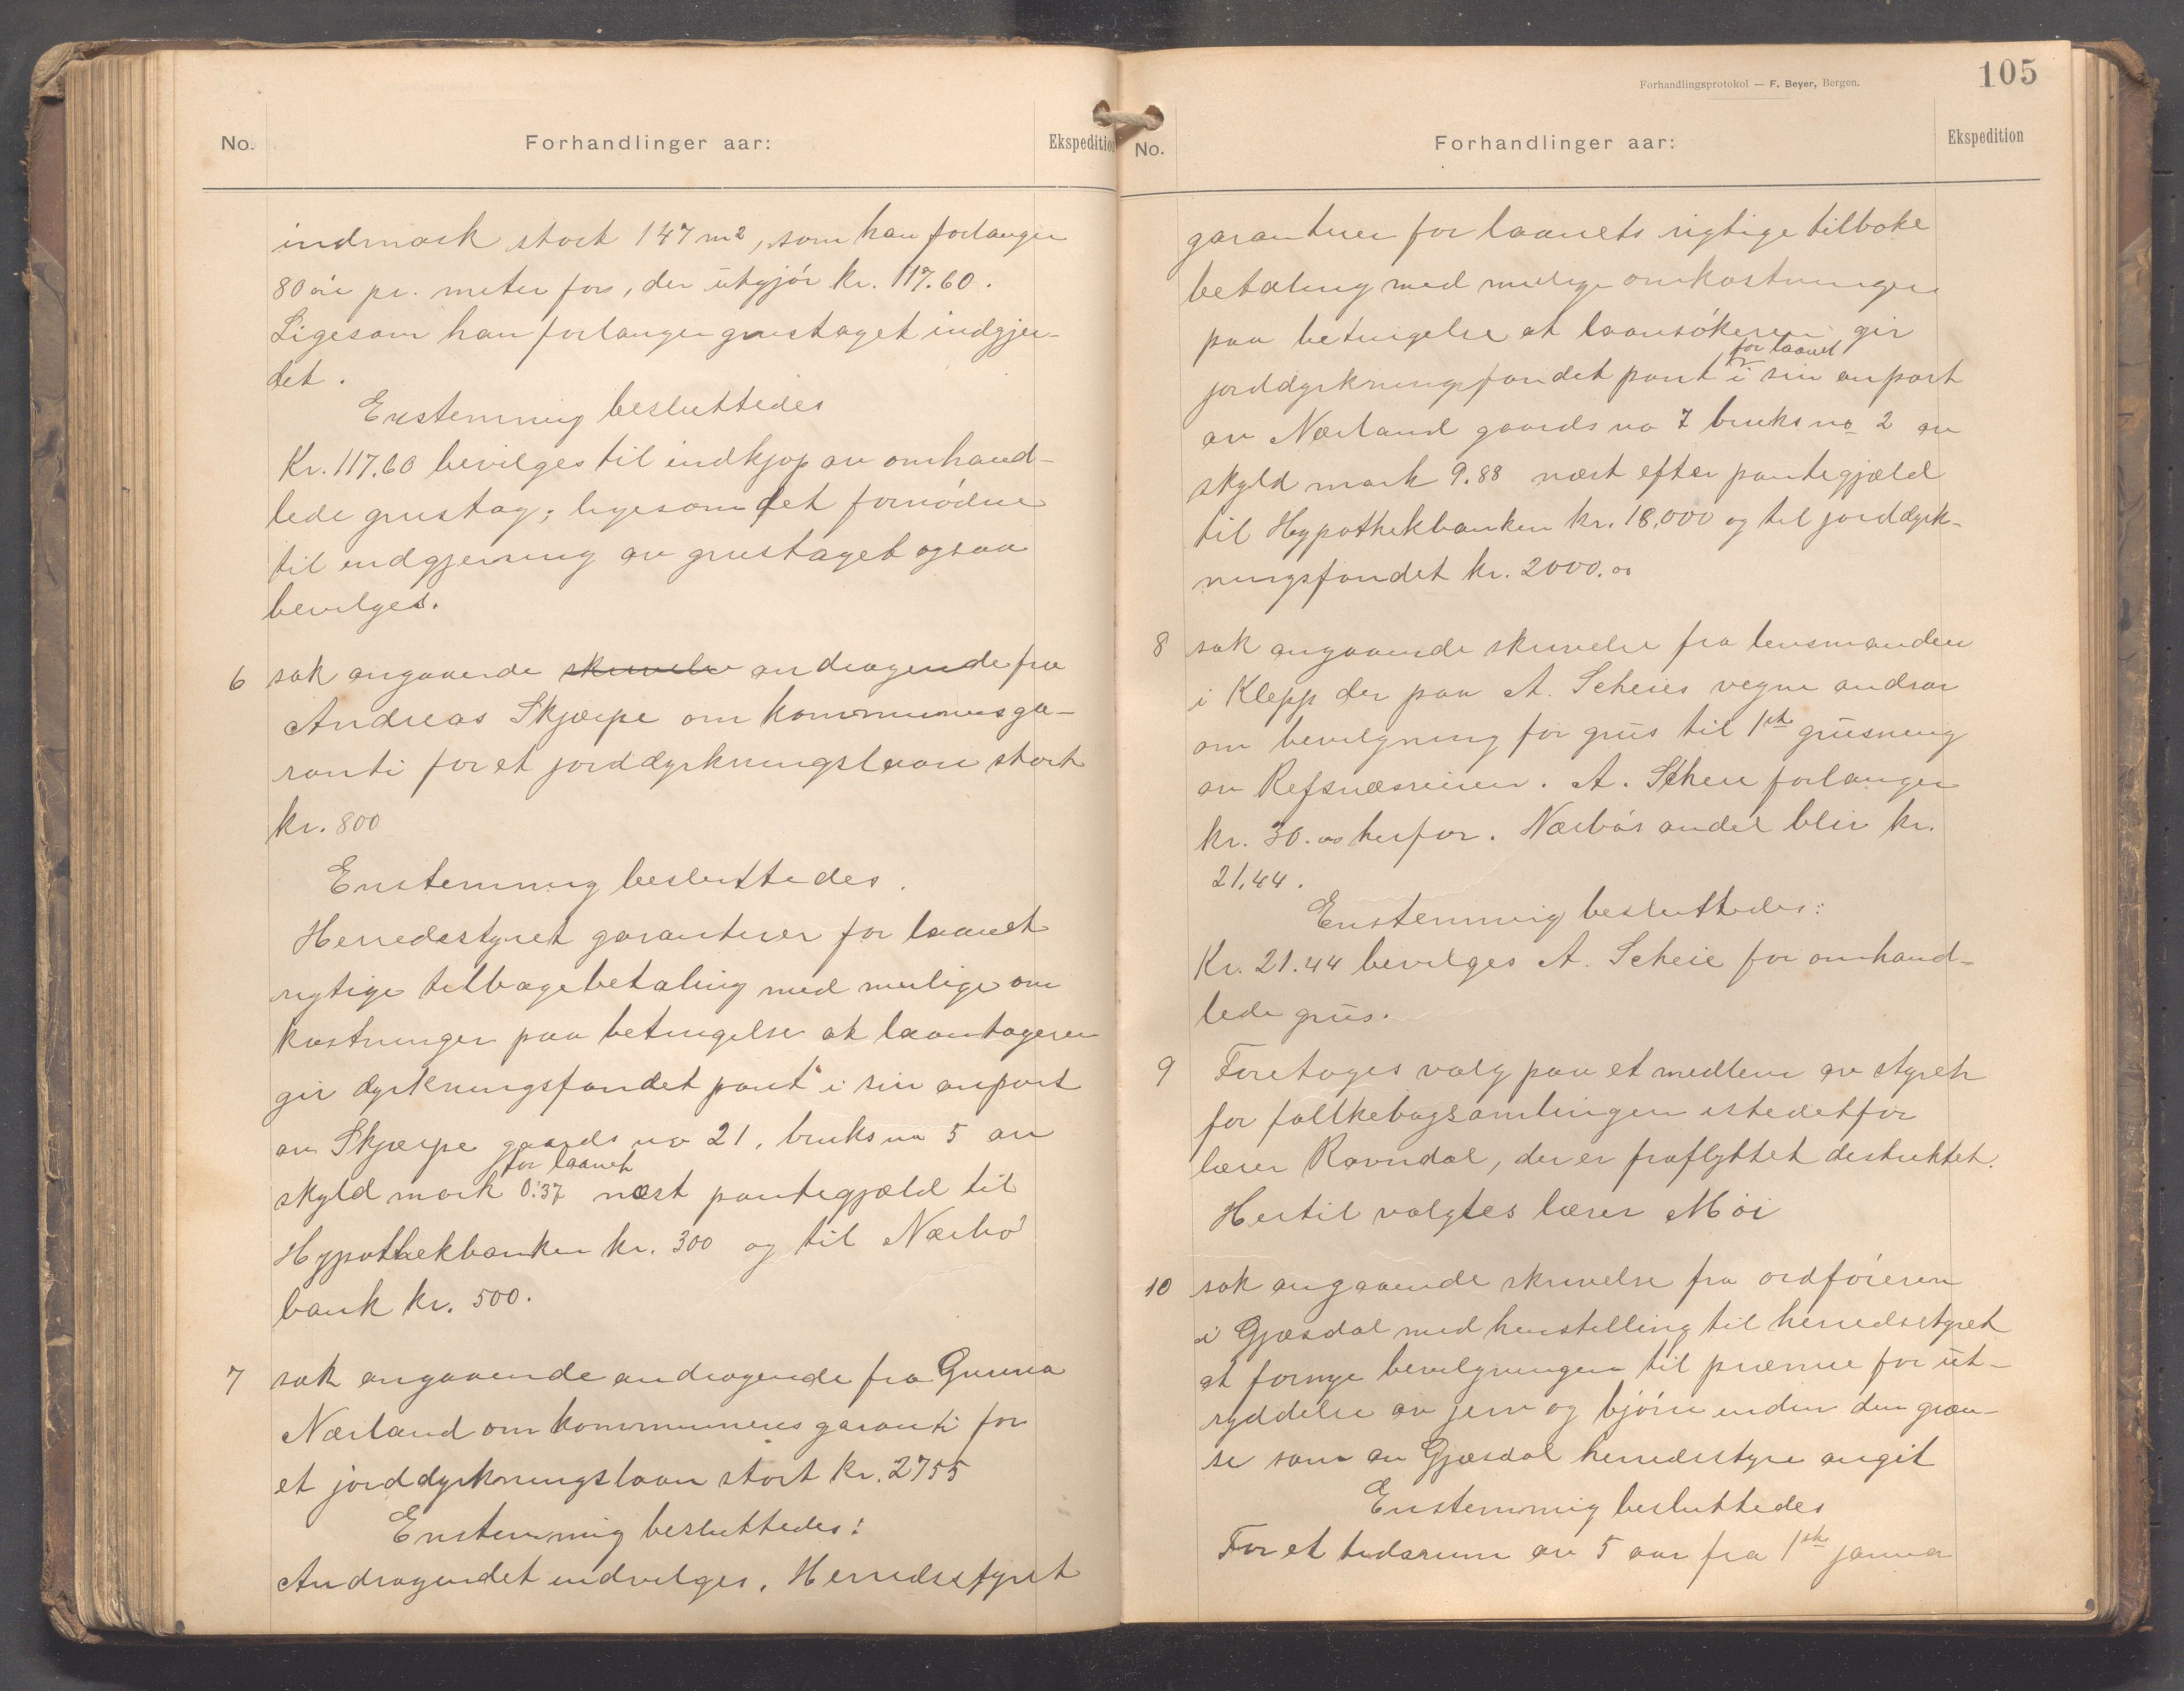 No. Forhandlinger aar: Ekspedition
indmark stort 147 m2, som han forlanger
80 öre pr. meter for, der utgjör kr. 117.60.
Ligesom han forlanger grustaget indgjer-
det.
Enstemmig besluttedes
Kr. 117.60 bevilges til indkjøp av omhand-
lede grustag; ligesom det fornödne
til indgjerning av grustaget ogsaa
bevilges.
6 sak angaaende skrivelse andragende fra
Andreas Skjærpe om kommunens ga-
ranti for et jorddyrkningslaan stort
kr. 800
Enstemmig besluttedes.
Herredsstyret garanterer for laanets
rigtige tilbagebetaling med mulige om
kostninger paa betingelse at laantageren
gir dyrkningsfondet pant i sin anpart
av Skjærpe gaards no 21, bruks no 5 av
for laanet
skyld mark 0.37 næst pantegjæld til
Hypothekbanken kr. 300 og til Nærbö
bank kr. 500.
7 sak angaaende andragende fra Gunna
Nærland om kommunens garanti for
et jorddyrkningslaan stort kr. 2755
Enstemmig besluttedes:
Andragendet indvilges. Herredsstyret
Forhandlingsprotokol — F. Beyer, Bergen.
105
No. Forhandlinger aar: Ekspedition
garanterer for laanets rigtige tilbake
betaling med mulige omkostninger
paa betingelse at laansökeren gir
for laanet
jorddyrkningsfondet pant i sin anpart
av Nærland gaards no 7 bruks no 2 av
skyld mark 9.88 næst efter pantegjæld
til Hypothekbanken kr. 18,000 og til jorddyrk-
ningsfondet kr. 2000.00
8 sak angaaende skrivelse fra lensmanden
i Klepp der paa A. Scheies vegne andrar
om bevilgning for grus til 1ste grusning
av Refsnæsveien. A. Scheie forlanger
kr. 30.00 herfor. Nærbös andel blir kr.
21,44.
Enstemmig besluttedes:
Kr. 21.44 bevilges A. Scheie for omhand-
lede grus.
9 Foretoges valg paa et medlem av styret
for folkebogsamlingen istedetfor
lærer Ravndal, der er fraflyttet destriktet.
Hertil valgtes lærer Möi
10 sak angaaende skrivelse fra ordföreren
i Gjæsdal med henstilling til herredsstyret
at fornye bevilgningen til præmie for ut-
ryddelse av jerv og björn inden den græn-
se som av Gjæsdal herredsstyre angit
Enstemmig besluttedes
For et tidsrum av 5 aar fra 1ste januar